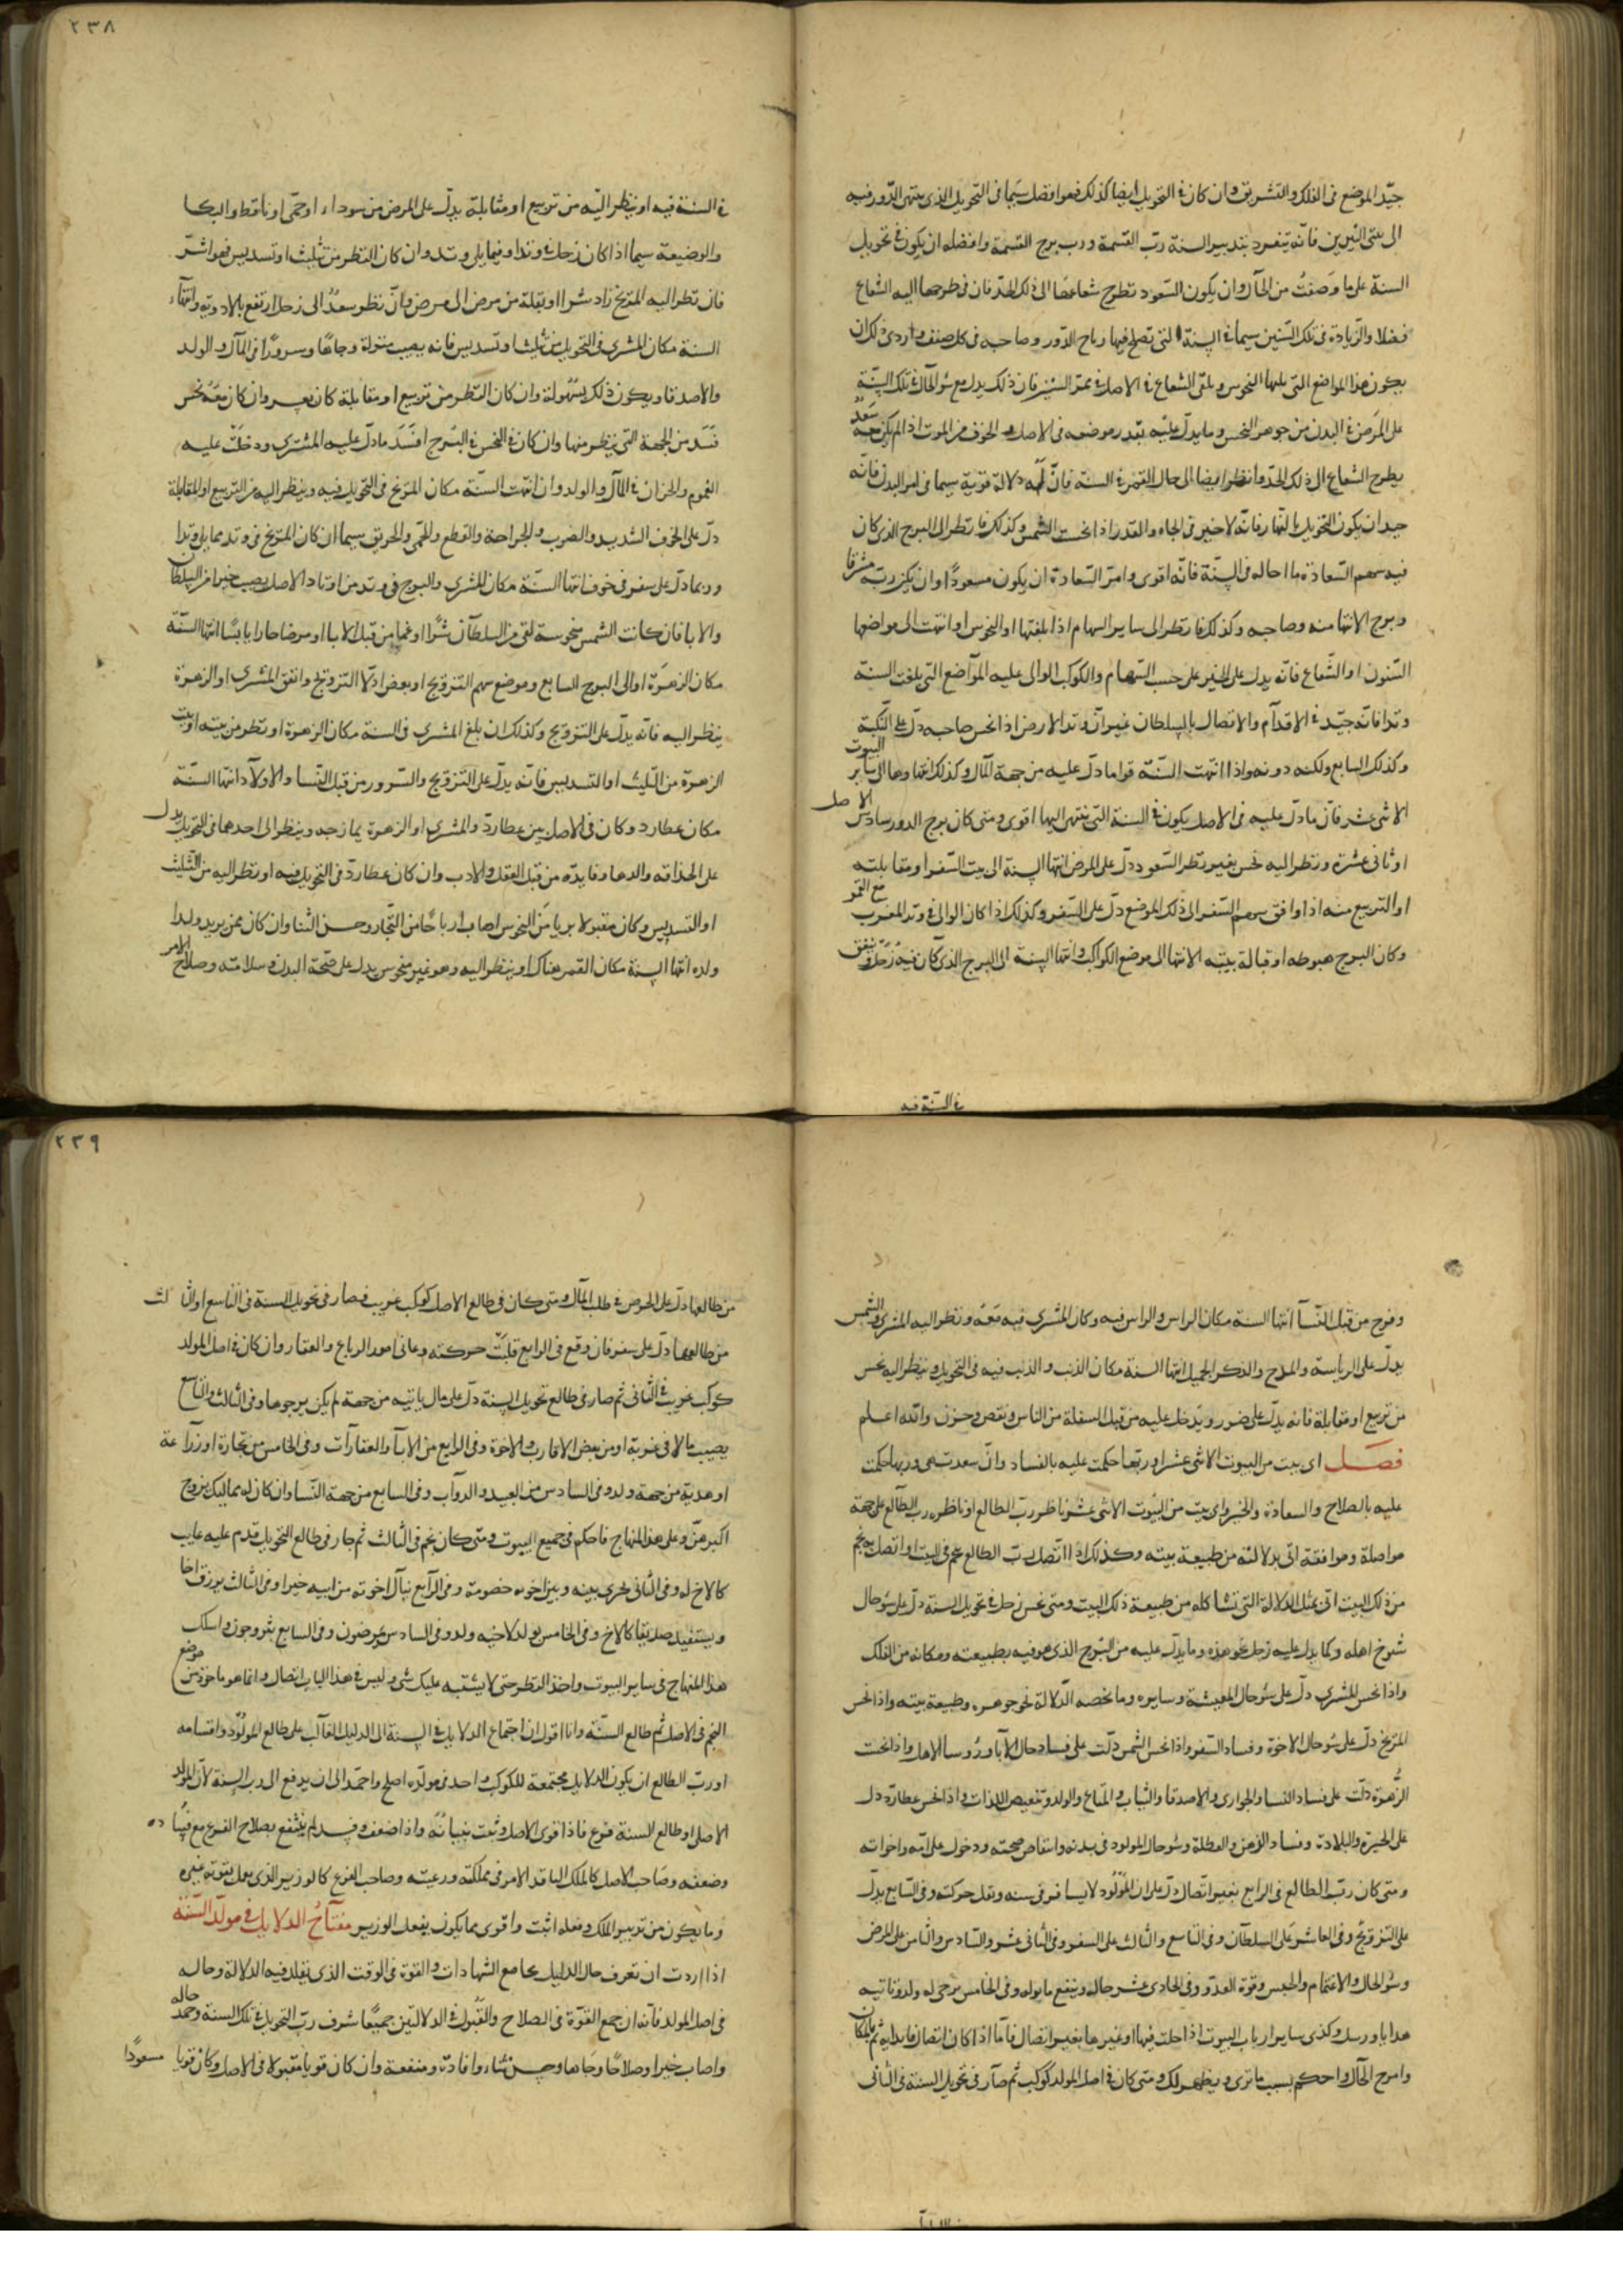 جيّد الموضع فى الفلك والتشريق وان كان فى التحويل ايضا كذلك فهوا فضل سيّما فى التحويل الذى ينتهى الدّور فيه
الى بيتى النيرين فانّه يتفرد بتدبير السنة ربّ القسمة ورب برج القسمة وافضله ان يكون فى تحويل
السنة على ما وصفتُ من الحال وان يكون السّعود تطرح شعاعها الى ذلك الحدّ فان فى طرحها اليه الشعاع
فضلا والزيادة فى تلك السّنين سيما فى السنة التى تصلح فيها رباح الدّور وصاحبه فى كل صنف واردى ذلك ان
يكون هذا المواضع التى يليها النحوس ويلقى الشعاع فى الاصل فى ممرّ السنين فان ذلك يدل مع سُو الحال فى تلك السّنة
على المرض فى البدن من جوهر النحس وما يدلّ عليه بقدر موضعه فى الاصل والخوف من الموت اذا لم يكن معه سَعد
يطرح الشعاع الى ذلك الحدّ وانظر ايضا الى حال القمر فى السنة فانّ له دلالة قوية سيما فى امر البدن فانّه
جيد ان يكون التحويل بالنهار فانّه لا خير فى الجاه والقدر اذا نحست الشمس وكذلك فانظر الى البرج الذى كان
فيه سهم السّعادة ما احاله فى السنة فانّه اقوى وامرّ السّعادة ان يكون مسعودًا وان يكن ربّه مشرقا
وبرج الانتها منه وصاحبه وكذلك فانظر الى ساير السهام اذا بلغتها او النحوس او انتهت الى مواضعها
السّنون او الشّعاع فانّه يدل على الخير على حسب السّهام والكوكب الوالى عليه المواضع التى بلغت السنة
وتدا فانه جيّد فى الاقدام والاتصال بالسلطان غير انّ وتد الارض اذا نحس صاحبه دلّ على النّكبة
وكذلك السابع ولكنه دونه واذا انتهت السّنة قوا ما دلّ عليه من جهة المال وكذلك انتهاوها الى ساير البيوت
الاثنى عشر فانّ ما دلّ عليه فى الاصل يكون فى السنة التى ينتهى اليها اقوى ومتى كان برج الدور سادس الاصل
او ثانى عشرة ونظر اليه نحس بغير نظر السّعود دلّ على المرض انتها السنة الى بيت السّفر او مقابلته
او التربيع منه اذا وافق سهم السّفر الى ذلك الموضع دلّ على السّفر وكذلك اذا كان الوالى فى وتد المغرب مع القمر
وكان البرج هبوطه او قبالة بيته الانتها الى موضع الكواكب وانتها السنة الى البرج الذى كان فيه زحل يتفق
فى السنة فيه
٢٣٨
فى السنة فيه او ينظر اليّه من تربيع او مقابلة يدلّ على المرض من سوداء او حمّى او ناقط والبكا
والوضيعة سيما اذا كان زحل فى وتد او فيما يلى وتد وان كان النظر من تثليث او تسديس فهو اشرّ
فان نظر اليه المرّيخ زاد شرا او نقلة من مرض الى مرض وانّ نظر سعدٌ الى زحل ارتفع بالادوية وانتهاء
السنة مكان المشترى فى التحويل من تثليث او تسديس فانه يصيب منزلة وجاهًا وسرورًا فى المال والولد
والاصدقا ويكون ذلك بسُهولة وان كان النّظر من تربيع او مقابلة كان بعسر وان كان معَهُ نحس
فَسَد من الجهة التى ينظر منها وان كان فى النحس فى البُرج افسَدَ ما دلّ عليه المشترى ودخلَتْ عليه
الغموم والحزان فى المال والولد وان انتهت السنّة مكان المريخ فى التحويل فيه وينظر اليه من التربيع او المقابلة
دلّ على الخوف الشديد والضرب والجراحة والقطع والحمى والحريق سيما ان كان المرّيخ فى وتد مما يلى وتدا
وربما دلّ على سفر فى خوف انتها السّنة مكان المشترى والبرج فى وتد من اوتاد الاصل يصيب خيرا من السلطان
والابا فان كانت الشمس منحوسة لقى من السلطان شرًّا او غما من قبل الابا او مرضا حارا يابسًا انتها السّنة
مكان الزهرة او الى البرج السابع وموضع سهم التزويج او بعض ادلّا التزويج واتفق المشترى او الزهرة
ينظر اليه فانّه يدلّ على التزويج وكذلك ان بلغ المشترى فى السنة مكان الزهرة او نظر من بيته او بيت
الزهرة من التّليث او التسديس فانّه يدلّ على التّزويج والسّرور من قبل النّسا والاولاد انتها السّنة
مكان عطارد وكان فى الاصل بين عطارد والمشترى او الزهرة يمازجه وينظر الى احدهما فى التحويل يدل
على الحذاقه والدها وفايدة من قبل العقل والادب وان كان عطارد فى التحويل فيه او نظر اليه من التّثليث
او التسديس وكان مقبولا بريا من النحوس اصاب ارباحًا من التّجار وحسن الثنا وان كان ممن يريد ولدا
ولده انتها السنة مكان القمر هناك او ينظر اليه وهو غير منحوس يدل على صحّة البدن وسلامته وصلاح الامر
وفرح من قبل النّساء انتها السنة مكان الراس والراس فيه وكان المشترى فيه مَعَهُ ونظر اليه المشترى والشمس
يدلّ على الرياسة والمدح والذكر الجميل انتها السنة مكان الذنب والذنب فيه فى التحويل وينظر اليه نحس
من تربيع او مقابلة فانه يدلّ على ضرر ويدخل عليه من قبل السفلة من الناس ونقص وحزن والله اعلم
فصَل اى بيت من البيوت الاثنى عشر او ربّها حكمت عليه بالفساد وانّ سعدت هى وربها حكمت
عليه بالصلاح والسعادة والخير واى بيت من البيُوت الاثنى عشر ناظر ربّ الطالع او ناظره ربّ الطالع على جهة
مواصلة وموافقة اتى بدلالته من طبيعة بيته وكذلك اذا اتّصل بربّ الطالع نجم فى البيت او اتصل به نجم
من ذلك البيت اتى بمثل الدلالة التى تشاكله من طبيعة ذلك البيت ومتى نحس زحل فى تحويل السنة دلّ على سُو حال
شيوخ اهله وكما يدل عليه زحل نحو هذه وما يدلّ عليه من البُرج الذى هو فيه بطبيعته ومكانه من الفلك
واذا نحس المشترى دلّ على سُو حال المعيشة وسايره وما يخصه الدّلالة نحو جوهره وطبيعة بيته واذا نحس
المرّيخ دلّ على سُو حال الاخوة وفساد السّفر واذا نحس الشمس دلّت على فساد حال الآبا ورُوسا الاهل واذا نحست
الزُّهرة دلّت على فساد النسا والجوارى والاصدقا والثياب والمتاع والولد وتنغيص اللذات واذا نحس عطارد دل
على الحيرة والبلادة وفساد الذهن والعطلة وسُو حال المولود فى بدنه وانتقاض صحته ودخول على امّه واخواته
ومتى كان ربّ الطالع فى الرابع بغير اتّصال دلّ على ان المولُود لا يسافر فى سنه وتقل حركته وفى السّابع يدلّ
على التزويجُ وفى العاشر على السلطان وفى التاسع والثالث على السفر وفى الثانى عشر والسّادس والثامن على المرض
وسُو الحال والاغتمام والحبس وقوة العدوّ وفى الحادى عشر حاله وينفع ما يوله وفى الخامس يرجى له ولد وتاتيه
هدايا ورسل وكذى ساير ارباب البيوت اذا حلت فيها او غيرها بغير اتصال فامّا اذا كان اتصال فابدا به ثم بالمكان
وامزج الحال واحكم بسبب ما ترى ويظهر لك ومتى كان فى اصل المولد كوكب ثم صار فى تحويل السنة فى الثانى
٢٣٩
من طالعها دلّ على الحرص فى طلب المال ومتى كان فى طالع الاصل كوكب غريب فصار فى تحويل السنة فى التاسع او الثالث
من طالعها دلّ على سفر فان وقع فى الرابع قلّت حركته وعانى امور الرباع والعقار وان كان فى اصل المولد
كوكب غريب فى الثانى ثم صار فى طالع تحويل السنة دلّ على مال ياتيه من جهة لم يكن يرجوها وفى الثالث والتاسع
يصيب مالا فى غربة او من بعض الاقارب والاخوة وفى الرابع من الآباء والعقارات وفى الخامس من تجارة او زراعة
او هدية من جهة ولد وفى السادس من العبيد والدوآب وفى السابع من جهة النّسا وان كان له مماليك يزوج
اكبرهنّ وعلى هذا المنهاج فاحكم فى جميع البيوت ومتى كان نجم فى الثالث ثم صار فى طالع التحويل قدم عليه غايب
كالاخ له وفى الثانى تجرى بينه وبين اخوته خصومة وفى الرآبع ينال اخوته من ابيه خيرا وفى الثالث يرزق اخا
ويستفيد صديقا كالاخ وفى الخامس يولد لاخيه ولد وفى السادس يمرضون وفى السابع يتزوجون واسلك
هذا المنهاج فى ساير البيوت واخذ النظر حتى لا يشتبه عليك شى وليس فى هذا الباب اتصال وانما هو ماخوذ من موضع
النجم فى الاصل ثم طالع السّنة وانا اقول ان اجتماع الدلايل فى السنة الى الدليل الغالب على طالع المولُود واقسامه
او ربّ الطالع ان يكون الدلايل مجتمعة للكوكب واحد فى مولده اصلح واحمد الى ان يدفع الى رب السنة لانّ المولد
الاصل او طالع السنة فرع فاذا قوى الاصل وثبت بنباته واذا ضعف وفسد لم ينتفع بصلاح الفرع مع فساده
وضعفه وصاحب الاصل كالملك النافذ الامر فى مملكته ورعيته وصاحب الفرع كالوزير الذى يعمل بقوته غيره
وما يكون من تدبير الملك وفعله اثبت واقوى مما يكون بفعل الوزير مفتاحُ الدلايل فى مولد السّنة
اذا اردت ان تعرف حال الدليل بمجامع الشهادات والقوة فى الوقت الذى يقلد فيه الدلالة وحاله
فى اصل المولد فانّه ان جمع القوّة فى الصلاح والقبول فى الدلالتين جميعًا شرف ربّ التحويل فى تلك السنة وحمد حاله
واصاب خيرا وصلاحًا وجَاها وحسن ثناء وافادة ومنفعة وان كان قويا مقبولا فى الاصل وكان قويا مسعودًا